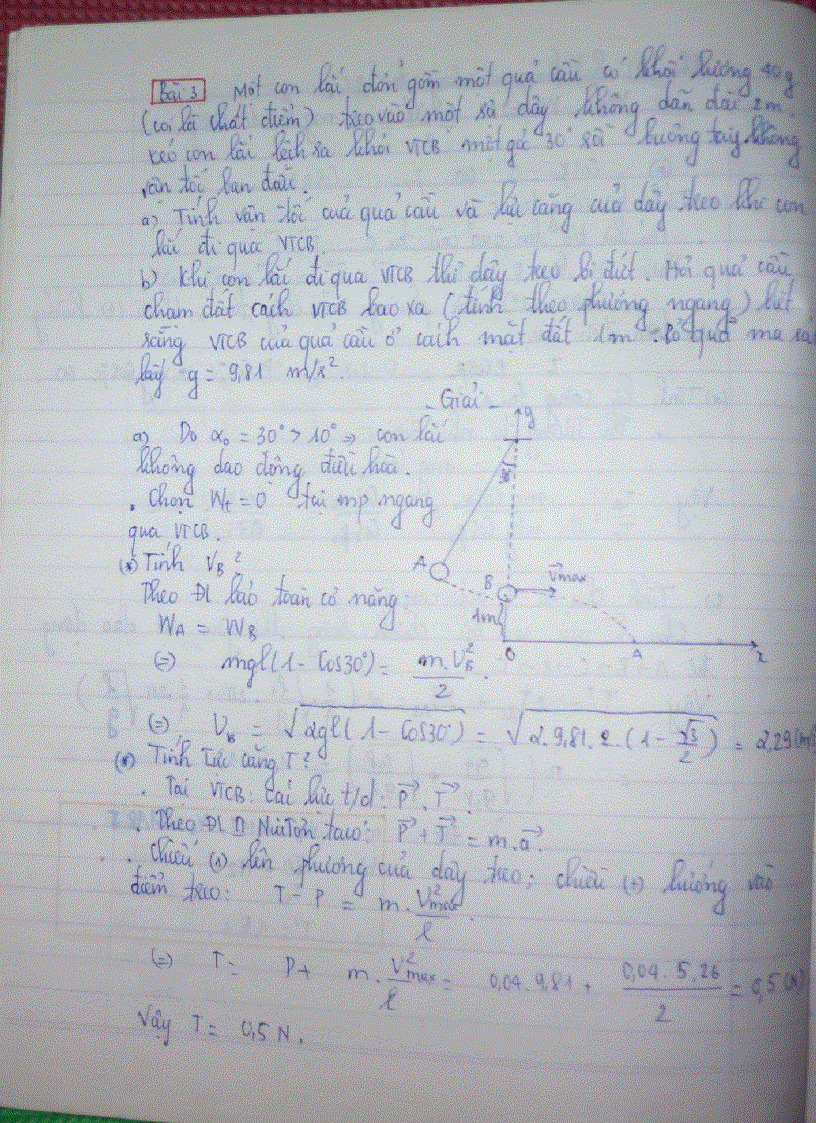 Bài 3 Một con lắc đơn gồm một quả cầu có khối lượng 40g
(coi là chất điểm) treo vào một sợi dây không dãn dài 2m.
kéo con lắc lệch ra khỏi VTCB một góc 30° rồi buông tay không
vận tốc ban đầu.
a) Tính vận tốc của quả cầu và lực căng của dây treo khi con
lắc đi qua VTCB.
b) Khi con lắc đi qua VTCB thì dây treo bị đứt. Hỏi quả cầu
chạm đất cách VTCB bao xa (tính theo phương ngang) biết
rằng VTCB của quả cầu ở cách mặt đất 1m. Bỏ qua ma sát
lấy g = 9,81 m/s².
- Giải -
y
a) Do α₀ = 30° > 10° => con lắc
không dao động điều hòa.
. Chọn Wt = 0 tại mp ngang
qua VTCB.
30°
A
B
Vmax
1m
O
A
x
(*) Tính VB ?
Theo ĐL bảo toàn cơ năng
WA = WB
(=) mgl(1 - Cos30°) = m.VB²/2
(=) VB = √2gl(1 - Cos30°) = √2.9,81.2.(1 - √3/2) = 2,29(m/s)
(*) Tính lực căng T?
. Tại VTCB: các lực t/d: P, T.
. Theo ĐL II Niutơn ta có: P + T = m.a.
. Chiếu (1) lên phương của dây treo; chiều (+) hướng vào
điểm treo: T - P = m.Vmax²/l.
(=) T = P + m.Vmax²/l = 0,04.9,81 + 0,04.5,26/2 = 0,5(N)
Vậy T = 0,5 N.